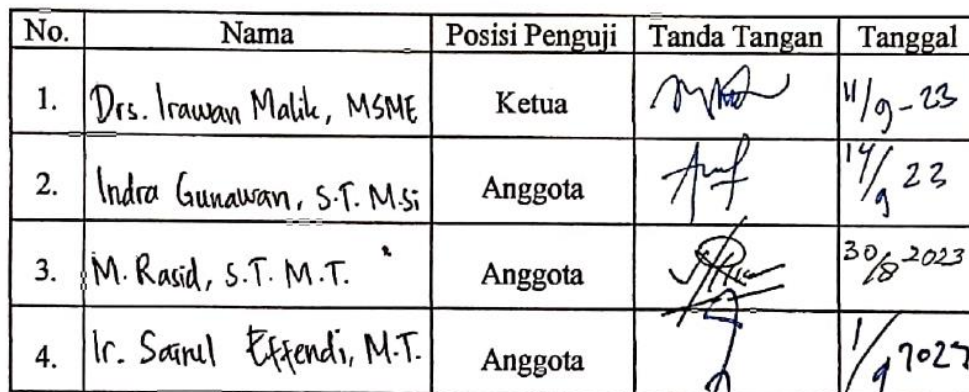 No. Nama Posisi Penguji Tanda Tangan Tanggal
1. Drs. Irawan Malik, MSME Ketua 11/9-23
2. Indra Gunawan, S.T. M.Si Anggota 14/9 23
3. M. Rasid, S.T. M.T. Anggota 30/8 2023
4. Ir. Sairul Effendi, M.T. Anggota 1/9 2023